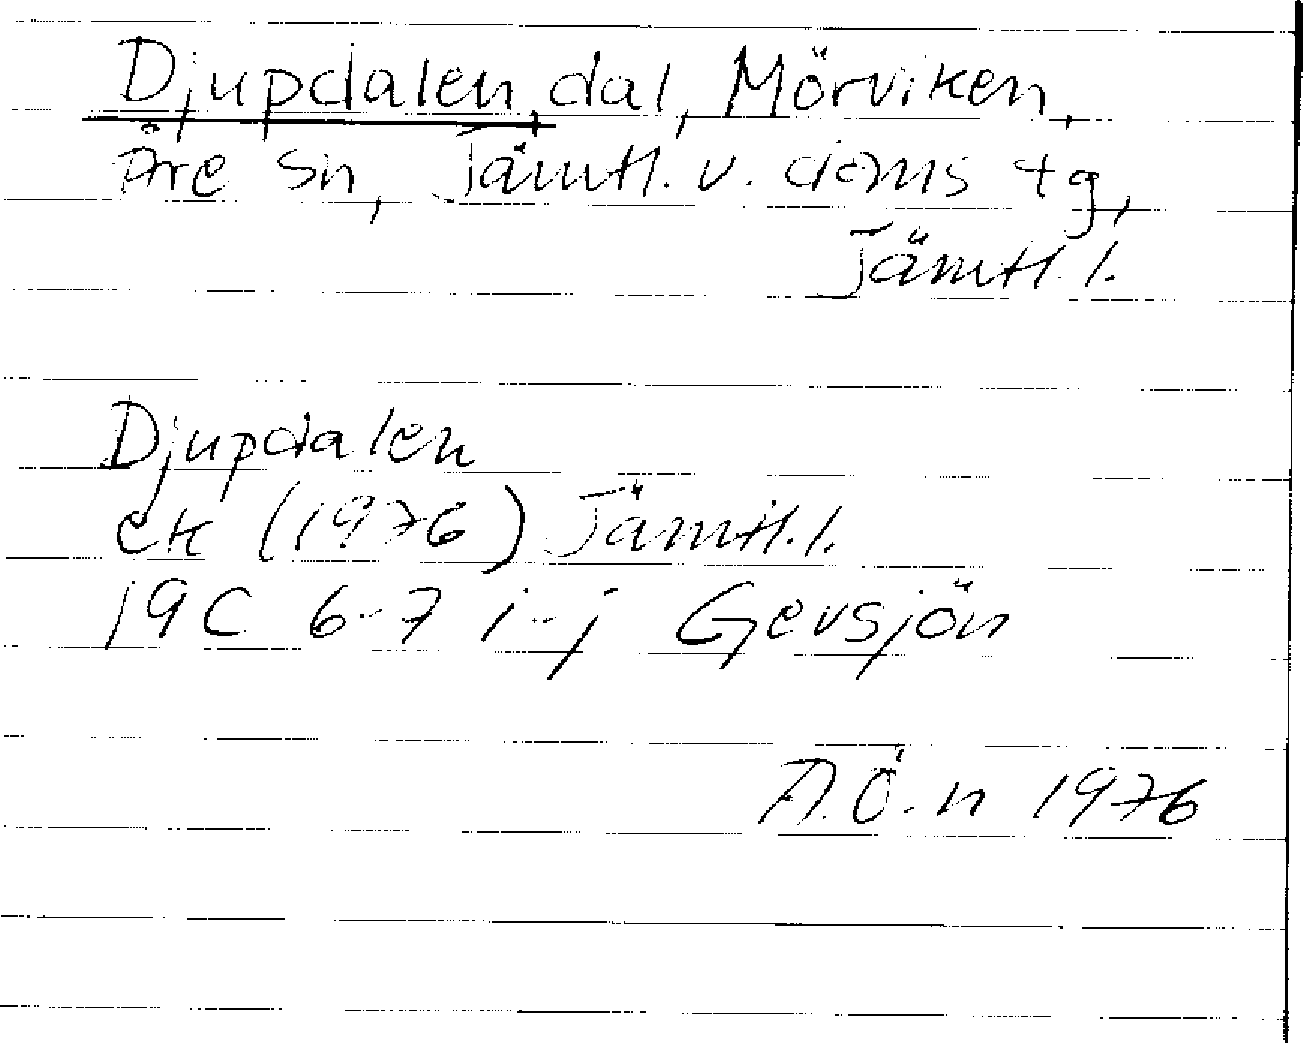 Djupdalen, dal, Mörviken,
Åre sn, Jämtl. v. doms tg,
Jämtl. l.
Djupdalen
ek (1976) Jämtl. l.
19C 6-7 i-j Gevsjön
A.Ö-n 1976